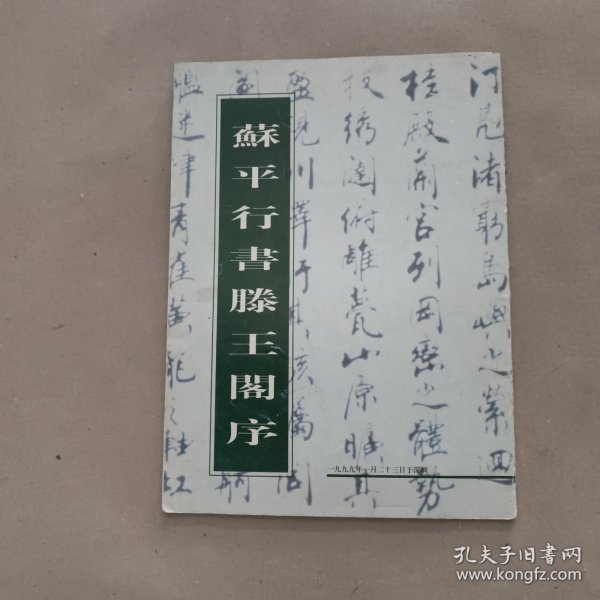 汀鳧渚窮島嶼之縈迴
桂殿蘭宮列岡巒之體勢
披綉闥俯雕甍山原曠其
盈視川澤盱其駭矚閭
舸
艦迷津青雀黄龍之軸虹
蘇平行書滕王閣序
一九九九年一月二十三日于深圳
孔夫子旧书网
www.kongfz.com